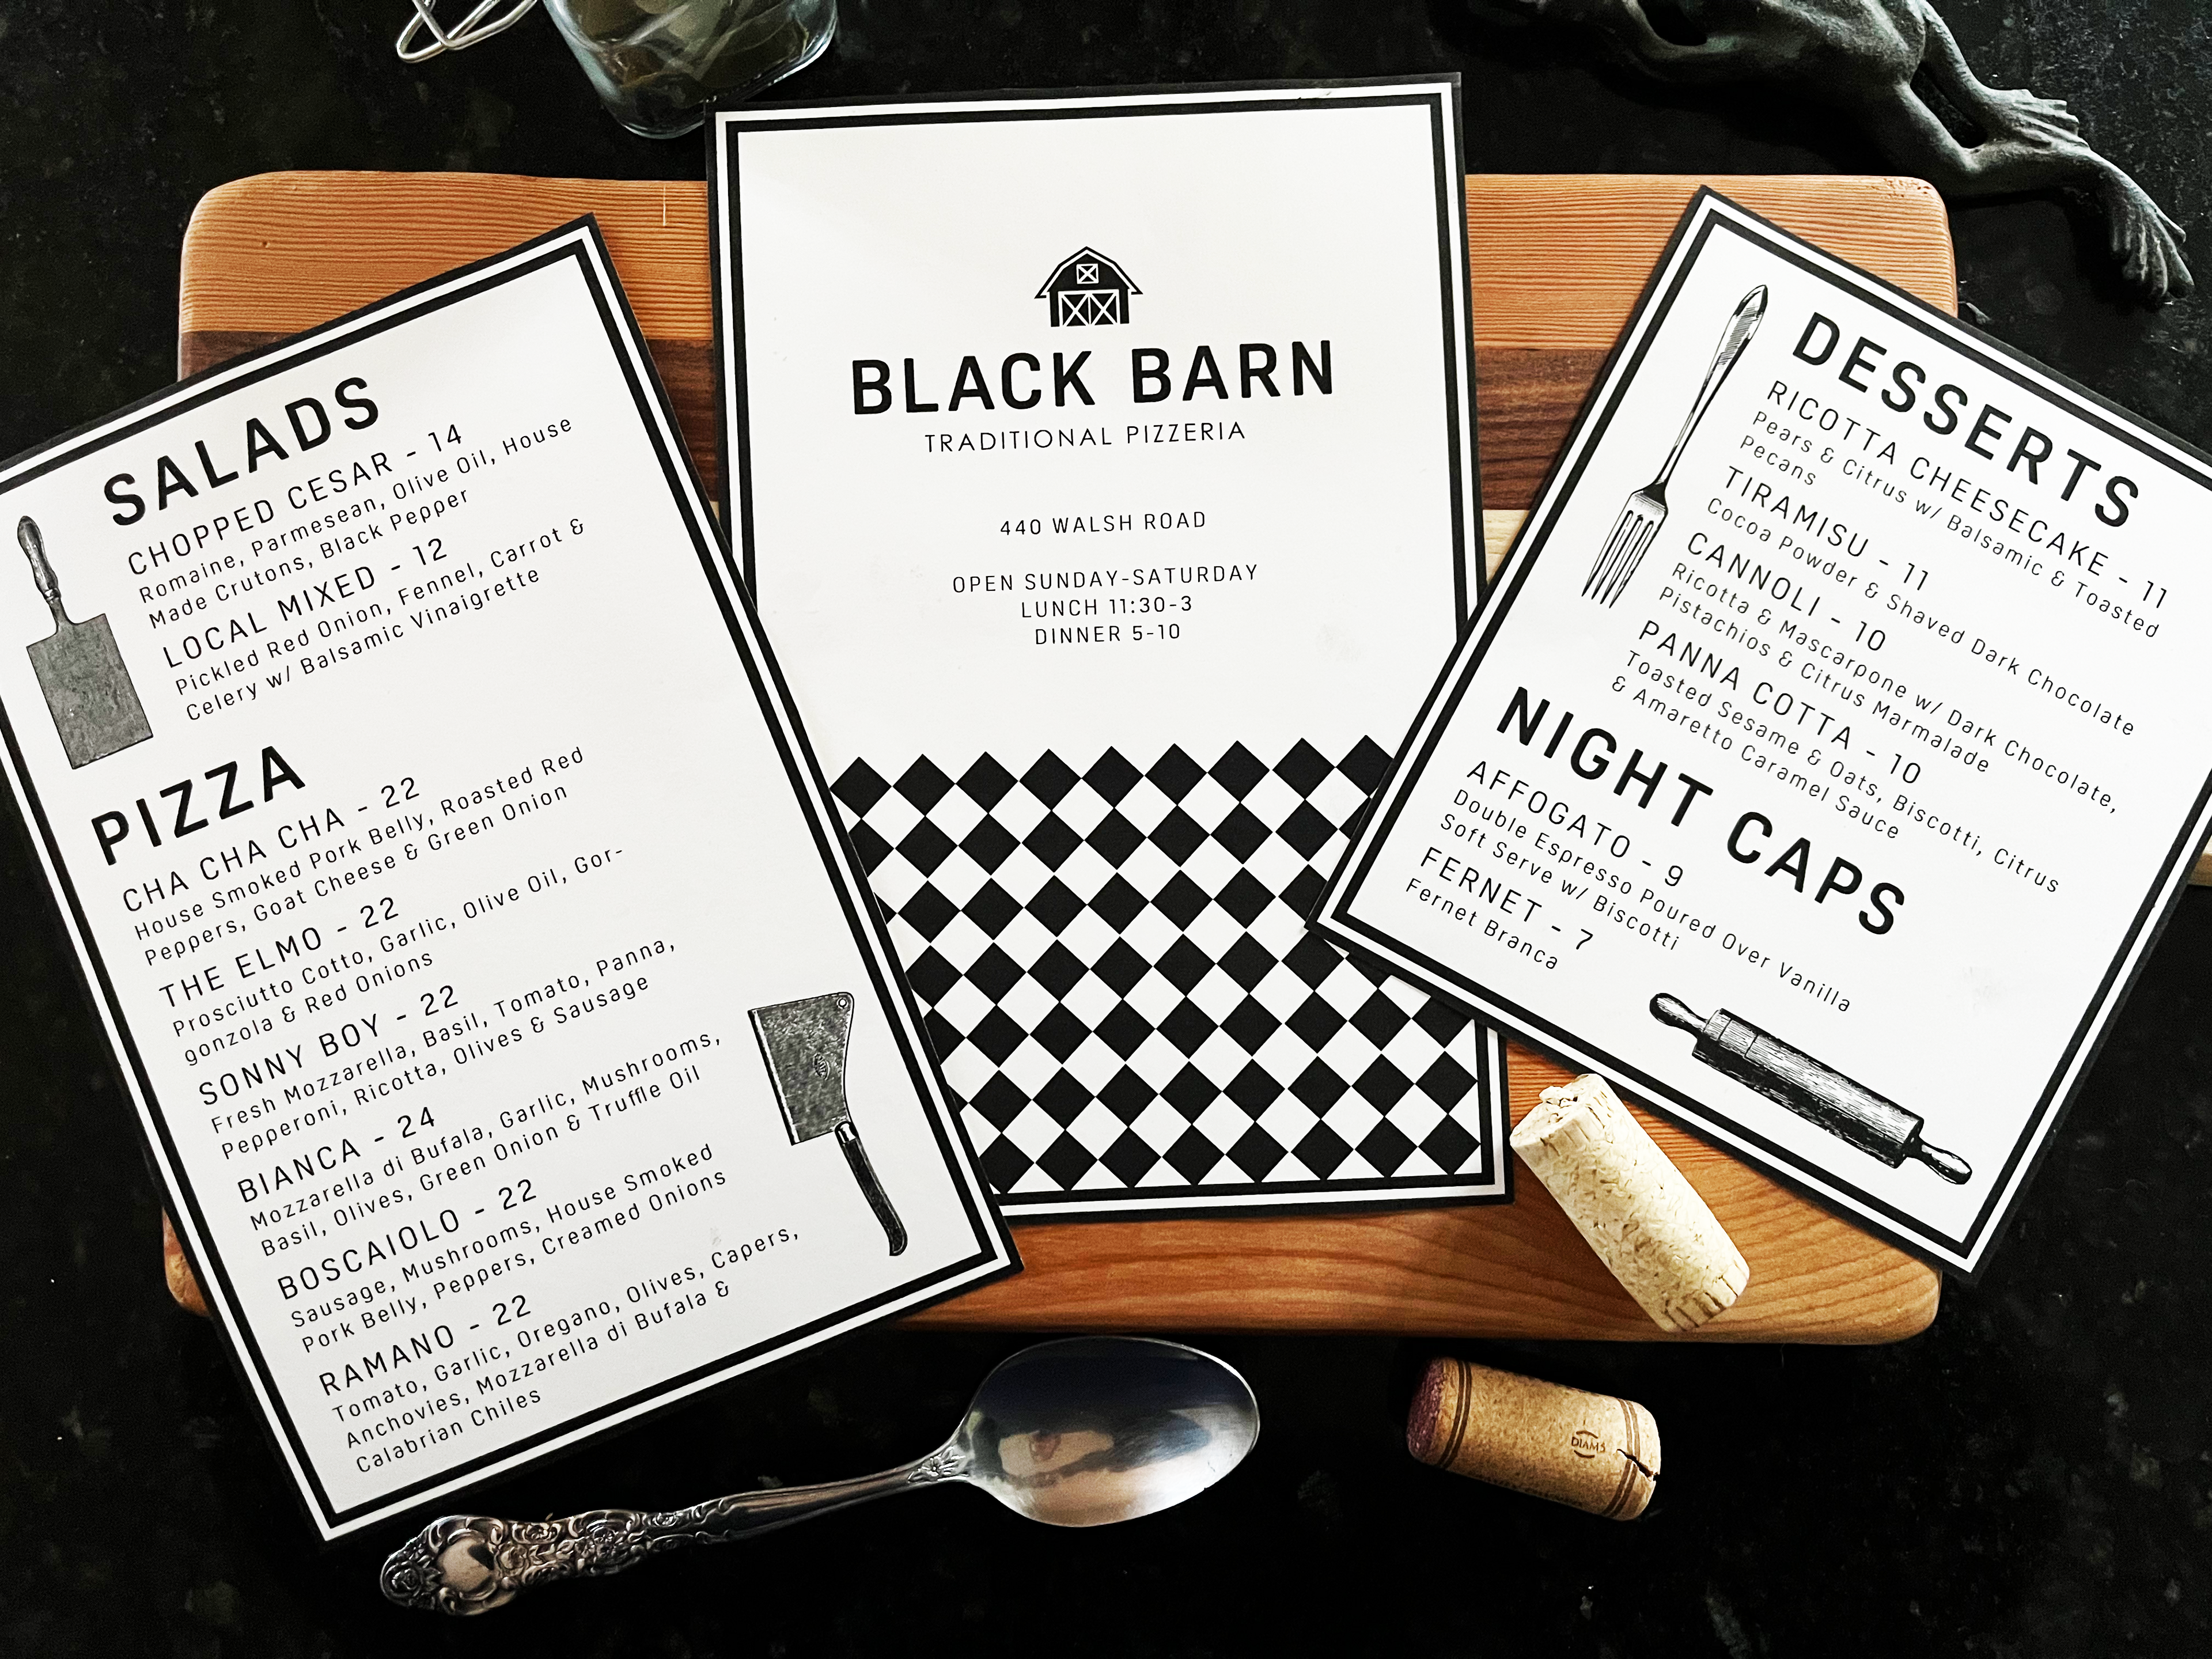 SALADS
CHOPPED CESAR - 14
Romaine, Parmesean, Olive Oil, House
Made Crutons, Black Pepper
LOCAL MIXED - 12
Pickled Red Onion, Fennel, Carrot &
Celery w/ Balsamic Vinaigrette
PIZZA
CHA CHA CHA - 22
House Smoked Pork Belly, Roasted Red
Peppers, Goat Cheese & Green Onion
THE ELMO - 22
Prosciutto Cotto, Garlic, Olive Oil, Gor-
gonzola & Red Onions
SONNY BOY - 22
Fresh Mozzarella, Basil, Tomato, Panna,
Pepperoni, Ricotta, Olives & Sausage
BIANCA - 24
Mozzarella di Bufala, Garlic, Mushrooms,
Basil, Olives, Green Onion & Truffle Oil
BOSCAIOLO - 22
Sausage, Mushrooms, House Smoked
Pork Belly, Peppers, Creamed Onions
RAMANO - 22
Tomato, Garlic, Oregano, Olives, Capers,
Anchovies, Mozzarella di Bufala &
Calabrian Chiles
BLACK BARN
TRADITIONAL PIZZERIA
440 WALSH ROAD
OPEN SUNDAY-SATURDAY
LUNCH 11:30-3
DINNER 5-10
DESSERTS
RICOTTA CHEESECAKE - 11
Pears & Citrus w/ Balsamic & Toasted
Pecans
TIRAMISU - 11
Cocoa Powder & Shaved Dark Chocolate
CANNOLI - 10
Ricotta & Mascarpone w/ Dark Chocolate,
Pistachios & Citrus Marmalade
PANNA COTTA - 10
Toasted Sesame & Oats, Biscotti, Citrus
& Amaretto Caramel Sauce
NIGHT CAPS
AFFOGATO - 9
Double Espresso Poured Over Vanilla
Soft Serve w/ Biscotti
FERNET - 7
Fernet Branca
DIAM5